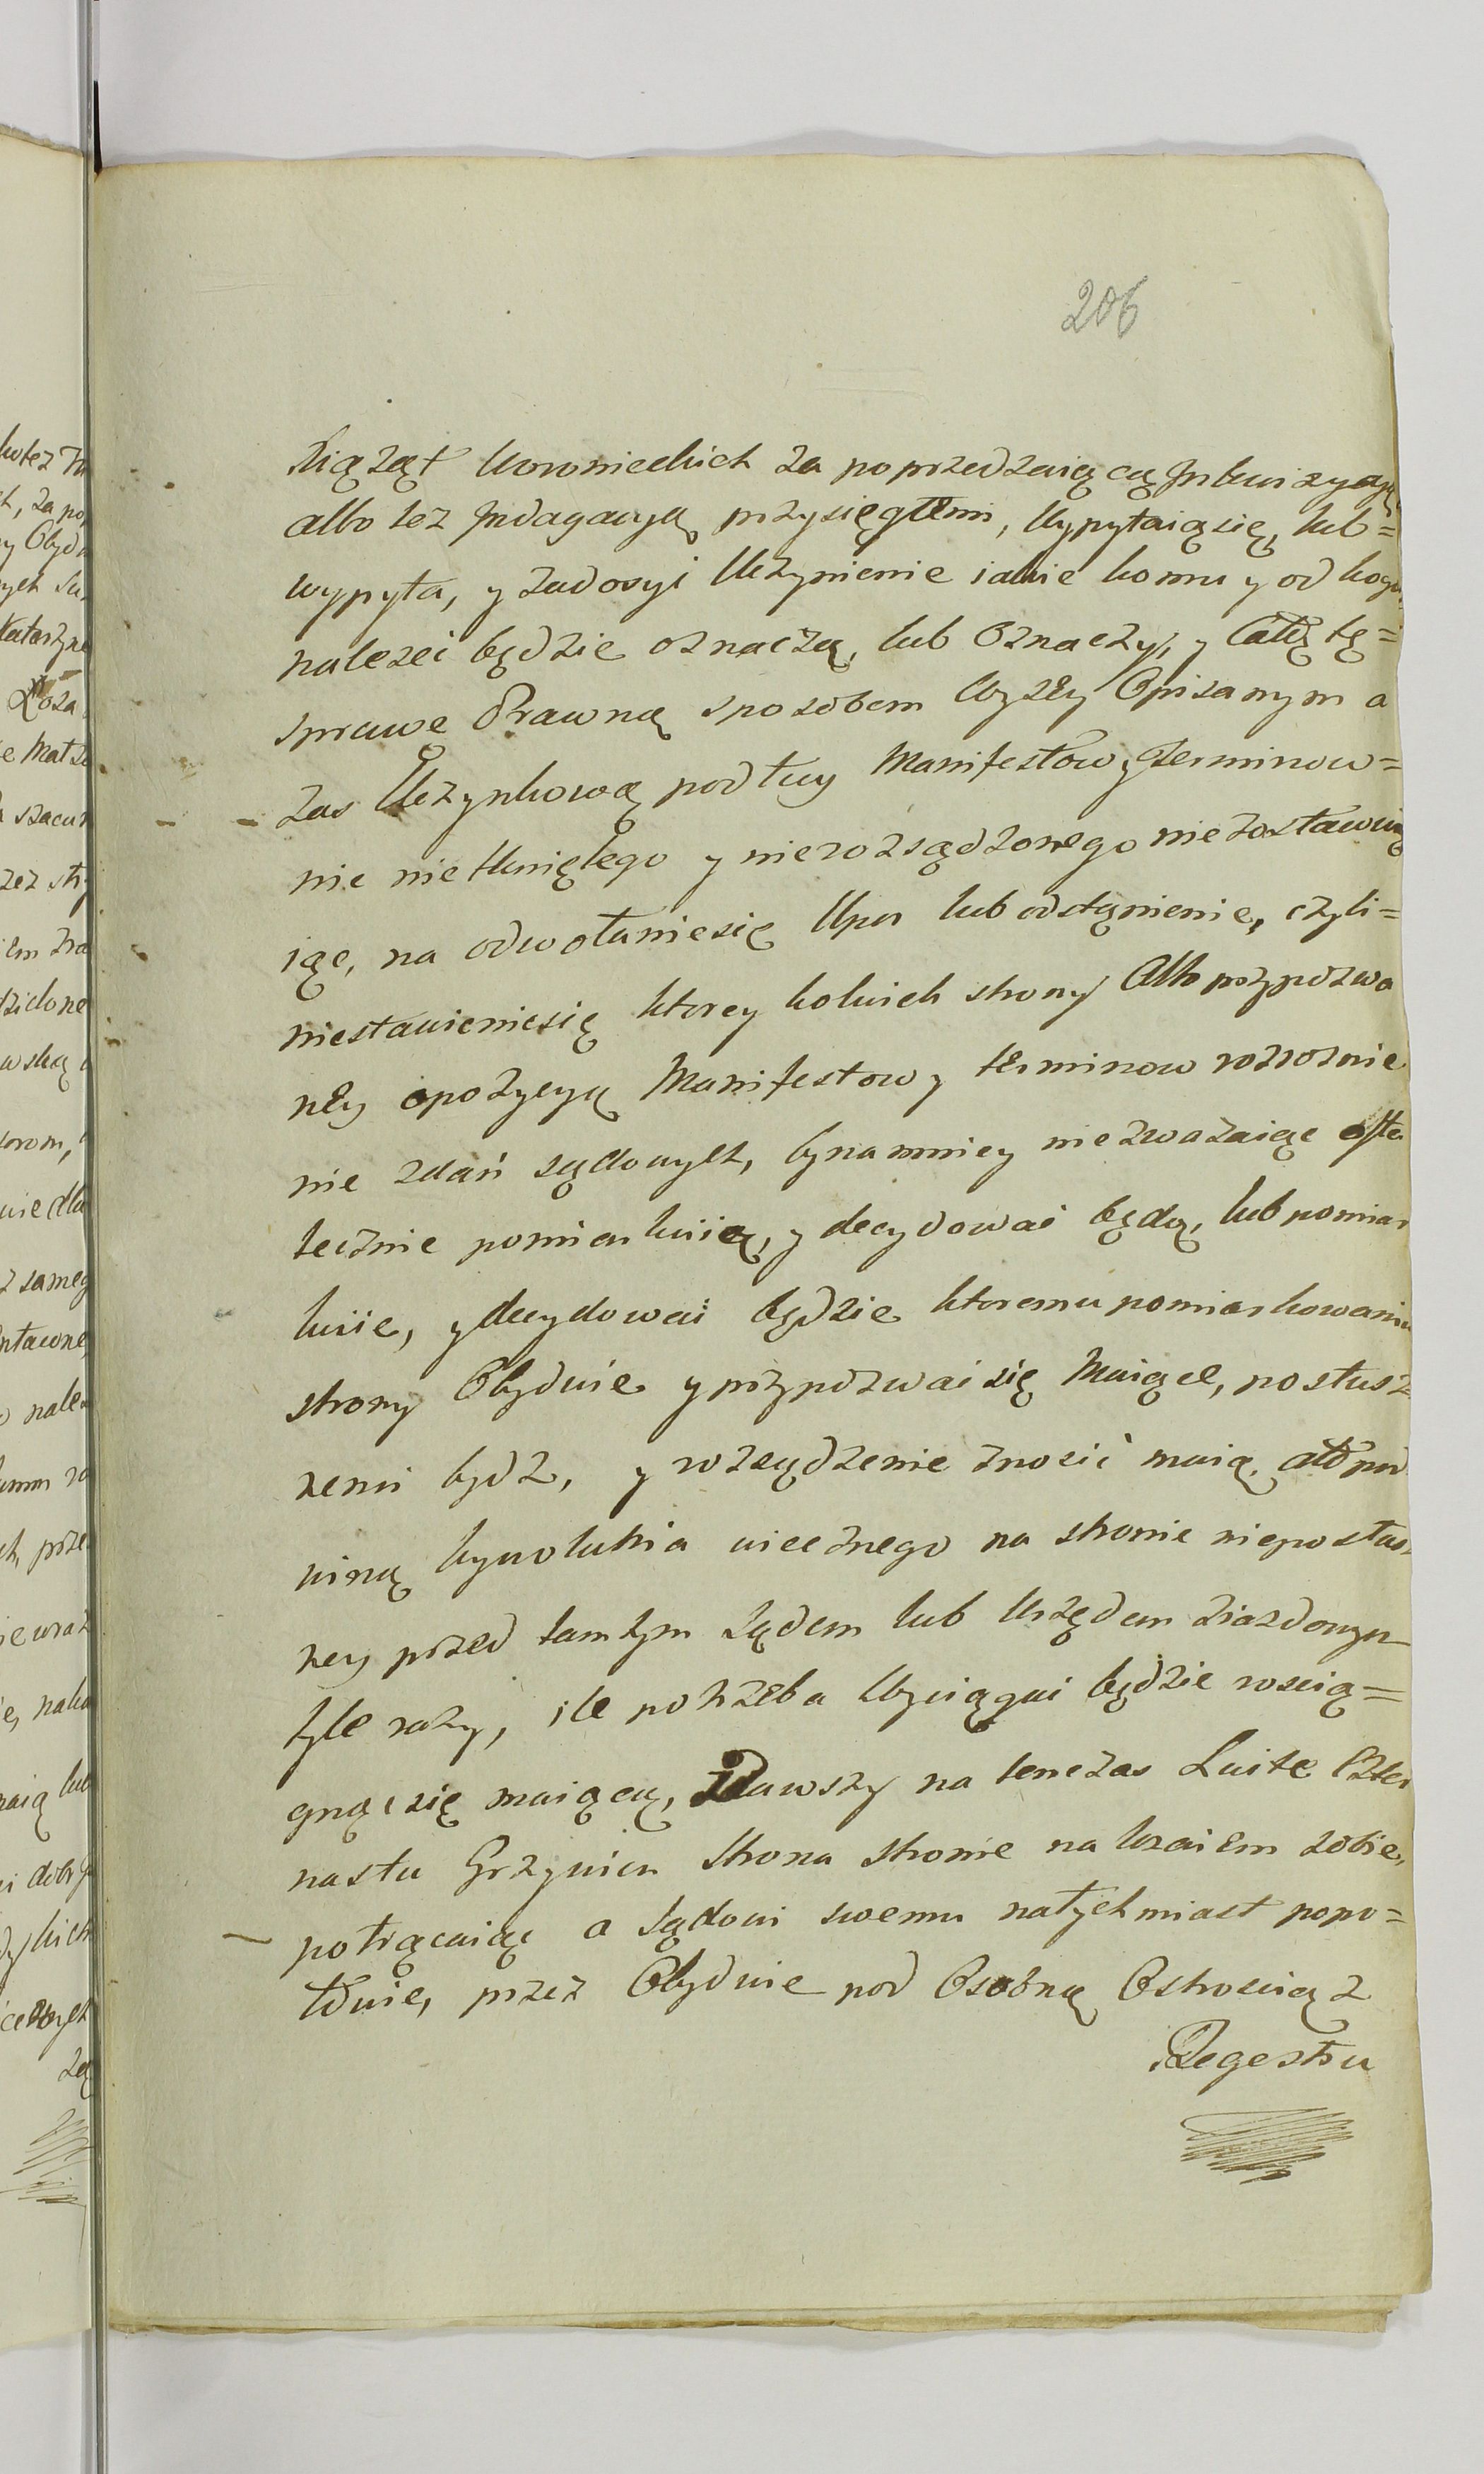 206
Xiążąt Woronieckich za poprzedzaiącą Inkwizycyą
albo tez Indagacyą przysięgłemi, Wypytaią się, lub=
wypyta, y zadosyć Uczynienie iakie komu y od kogo
nalezeć będzie oznaczą, lub Oznaczy, y Całą tę=
sprawe Prawną sposobem Wyzey Opisanym a
zas Uczynkową podług Manifestow y Terminow=
nic nietkniętego y nierozsądzonego niezostawu
iąc, na odwołaniesię Upor lub odstąpienie, czyli=
niestawieniesię ktorey kolwiek strony Albo przypozwa
ney opozycyą Manifestow y terminow rozroznie
nie zdań sądowych, bynamniey niezwazaiąc osta
tecznie pomiarkuią, y decydować będą, lub pomiar
kuie, y decydować będzie ktoremu pomiarkowaniu
strony Obydwie y przypozwać się Maiące, posłusz
nemi bydz, y rozsądzenie znosić maią, a to pod
winą bywolutnia wiecznego na stronie nieposłusz
ney przed tamtym Sądem lub Urzędem ziazdowym
tyle razy, ile potrzeba Wyciągać będzie roscią=
gnąć się maiącą, Dawszy na tenczas Luite Czter
nastu Grzywien strona stronie na wzaiem sobie,
potrącaiąc a Sądowi swemu natychmiast popo=
łowie, przez Obydwie pod Osobną Ostroscią z
Regestru